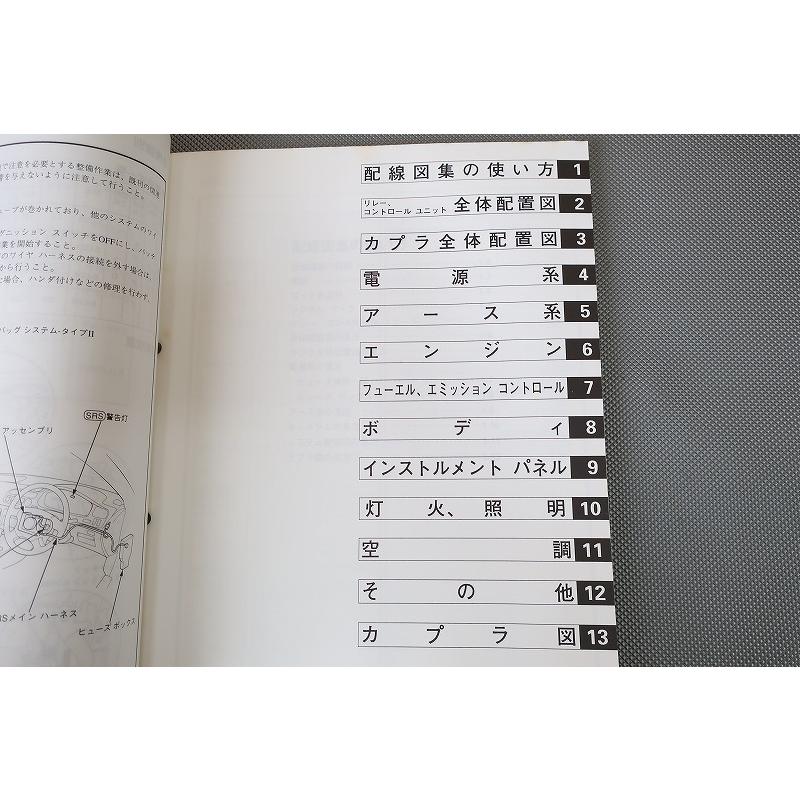 で注意を必要とする整備作業は、
響を与えないように注意して行うこと。
ューブが巻かれており、他のシステムのワイ
グニッション スイッチをOFFにし、バッテ
業を開始すること。
のワイヤ ハーネスの接続を外す場合は、
から行うこと。
場合、ハンダ付けなどの修理を行わず、
バッグ システム-タイプII
SRS警告灯
アッセンブリ
RSメイン ハーネス
ヒューズ ボックス
配線図集の使い方 1
リレー、
コントロール ユニット 全体配置図 2
カプラ全体配置図 3
電源系 4
アース系 5
エンジン 6
フューエル、エミッション コントロール 7
ボディ 8
インストルメント パネル 9
灯火、照明 10
空調 11
その他 12
カプラ図 13